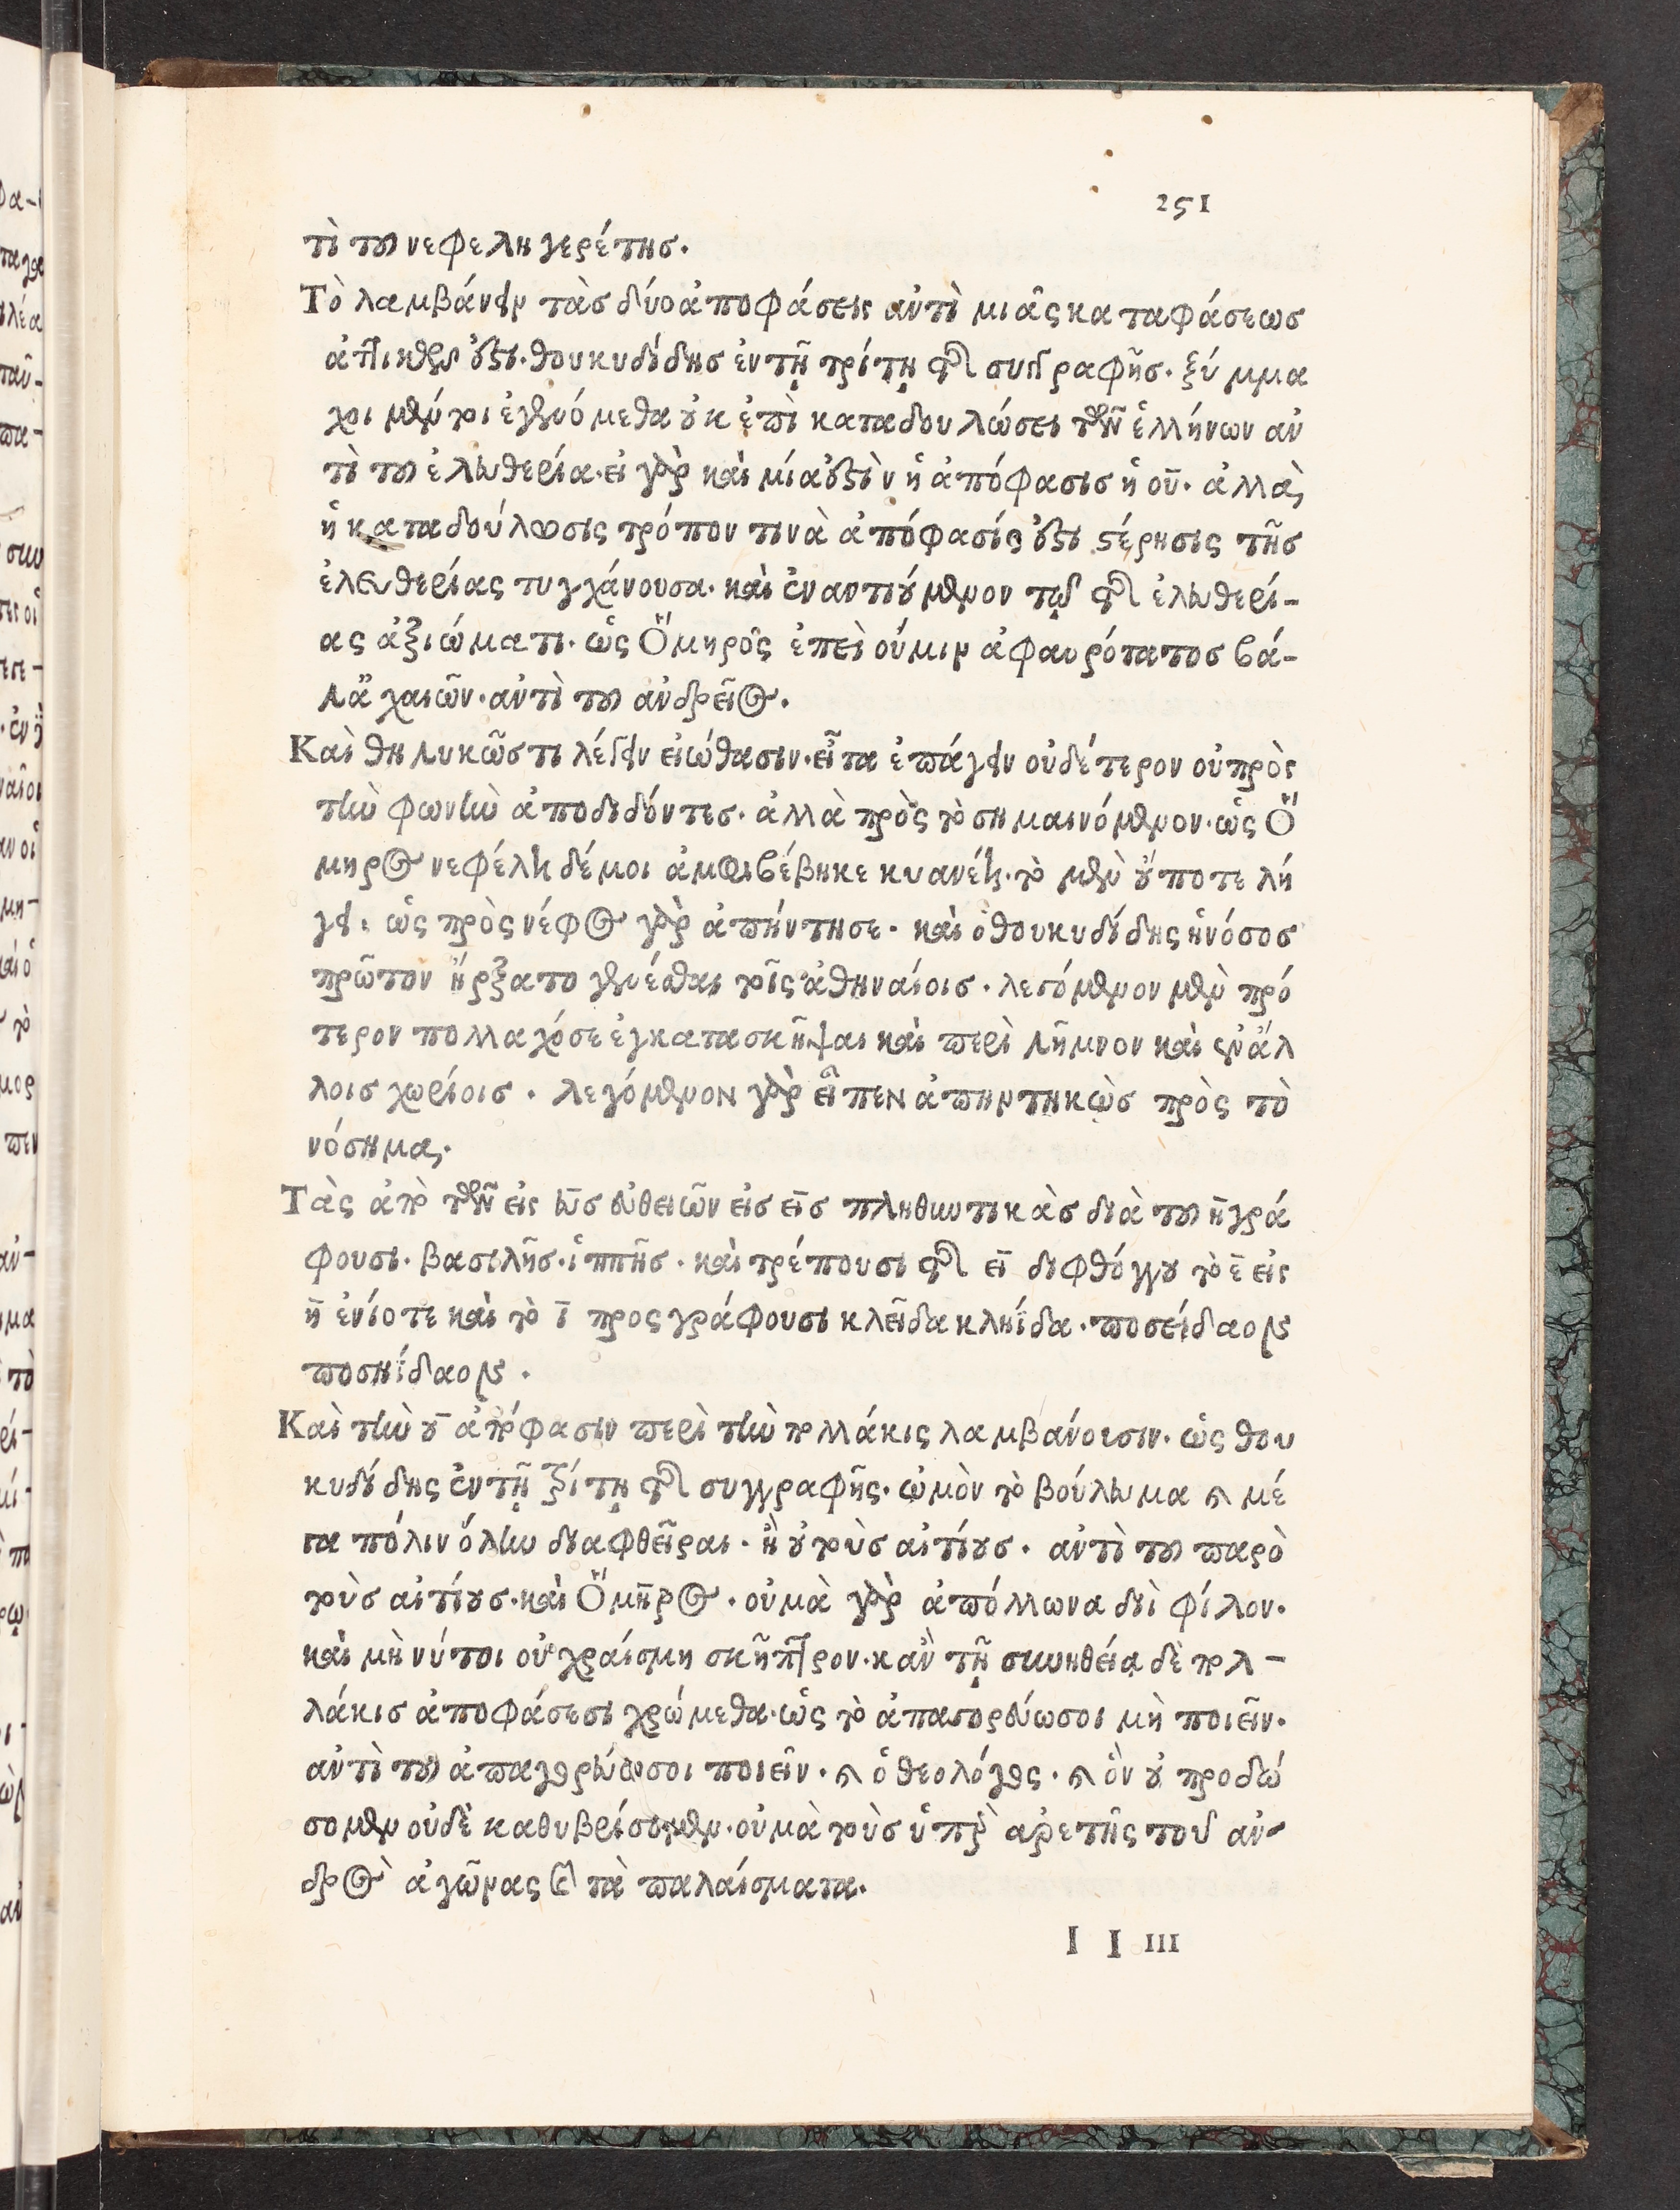 251
τὶ τοῦ νεφεληγερέτης.
Τὸ λαμβάνειν τὰς δύο ἀποφάσεις ἀντὶ μιᾶς καταφάσεως
ἀττικόν ἐστι. θουκυδίδης ἐν τῇ τρίτῃ τῆς συγγραφῆς. ξύμμα
χοι μέντοι ἐγενόμεθα οὐκ ἐπὶ καταδουλώσει τῶν ἑλλήνων ἀν
τὶ τοῦ ἐλευθερία. εἰ γὰρ καὶ μία ἐστὶν ἡ ἀπόφασις ἡ οὐ. ἀλλὰ
ἡ καταδούλωσις τρόπον τινὰ ἀπόφασίς ἐστι στέρησις τῆς
ἐλευθερίας τυγχάνουσα. καὶ ἐναντιούμενον τῷ τῆς ἐλευθερί-
ας ἀξιώματι. ὡς Ὅμηρος ἐπεὶ οὔμιν ἀφαυρότατος βά-
λ' ἀχαιῶν. ἀντὶ τοῦ ἀνδρεῖος.
Καὶ θηλυκῶς τι λέγειν εἰώθασιν. εἶτα ἐπάγειν οὐδέτερον οὐ πρὸς
τὴν φωνὴν ἀποδιδόντες. ἀλλὰ πρὸς τὸ σημαινόμενον. ὡς Ὅ
μηρος νεφέλη δέ μοι ἀμφιβέβηκε κυανέη. τὸ μὲν οὔποτε λή
γει. ὡς πρὸς νέφος γὰρ ἀπήντησε. καὶ ὁ θουκυδίδης ἡ νόσος
πρῶτον ἤρξατο γενέσθαι τοῖς ἀθηναίοις. λεγόμενον μὲν πρό
τερον πολλαχόσε ἐγκατασκῆψαι καὶ περὶ λῆμνον καὶ ἐν ἄλ
λοις χωρίοις. λεγόμενον γὰρ εἶπεν ἀπηντηκὼς πρὸς τὸ
νόσημα.
Τὰς ἀπὸ τῶν εἰς ευς εὐθειῶν εἰς εις πληθυντικὰς διὰ τοῦ η γρά
φουσι. βασιλῆς. ἱππῆς. καὶ τρέπουσι τῆς ει διφθόγγου τὸ ε εἰς
η ἐνίοτε καὶ τὸ ι προσγράφουσι κλεῖδα κληΐδα. ποσείδαον
ποσηίδαον.
Καὶ τὴν οὐ ἀπόφασιν περὶ τὴν πολλάκις λαμβάνουσιν. ὡς θου
κυδίδης ἐν τῇ τρίτῃ τῆς συγγραφῆς. ὠμὸν τὸ βούλευμα καὶ μέ
γα πόλιν ὅλην διαφθεῖραι. ἢ οὐ τοὺς αἰτίους. ἀντὶ τοῦ παρὸ
τοὺς αἰτίους. καὶ Ὅμηρος. οὐ μὰ γὰρ ἀπόλλωνα διὶ φίλον.
καὶ μὴ νύ τοι οὐ χραίσμῃ σκῆπτρον. κἀν τῇ συνηθείᾳ δὲ πολ-
λάκις ἀποφάσεσι χρώμεθα. ὡς τὸ ἀπαγορεύω σοι μὴ ποιεῖν.
ἀντὶ τοῦ ἀπαγορεύω σοι ποιεῖν. καὶ ὁ θεολόγος. καὶ ὃν οὐ προδώ
σομεν οὐδὲ καθυβρίσομεν. οὐ μὰ τοὺς ὑπὲρ ἀρετῆς τοῦ ἀν-
δρὸς ἀγῶνας καὶ τὰ παλαίσματα.
I I III